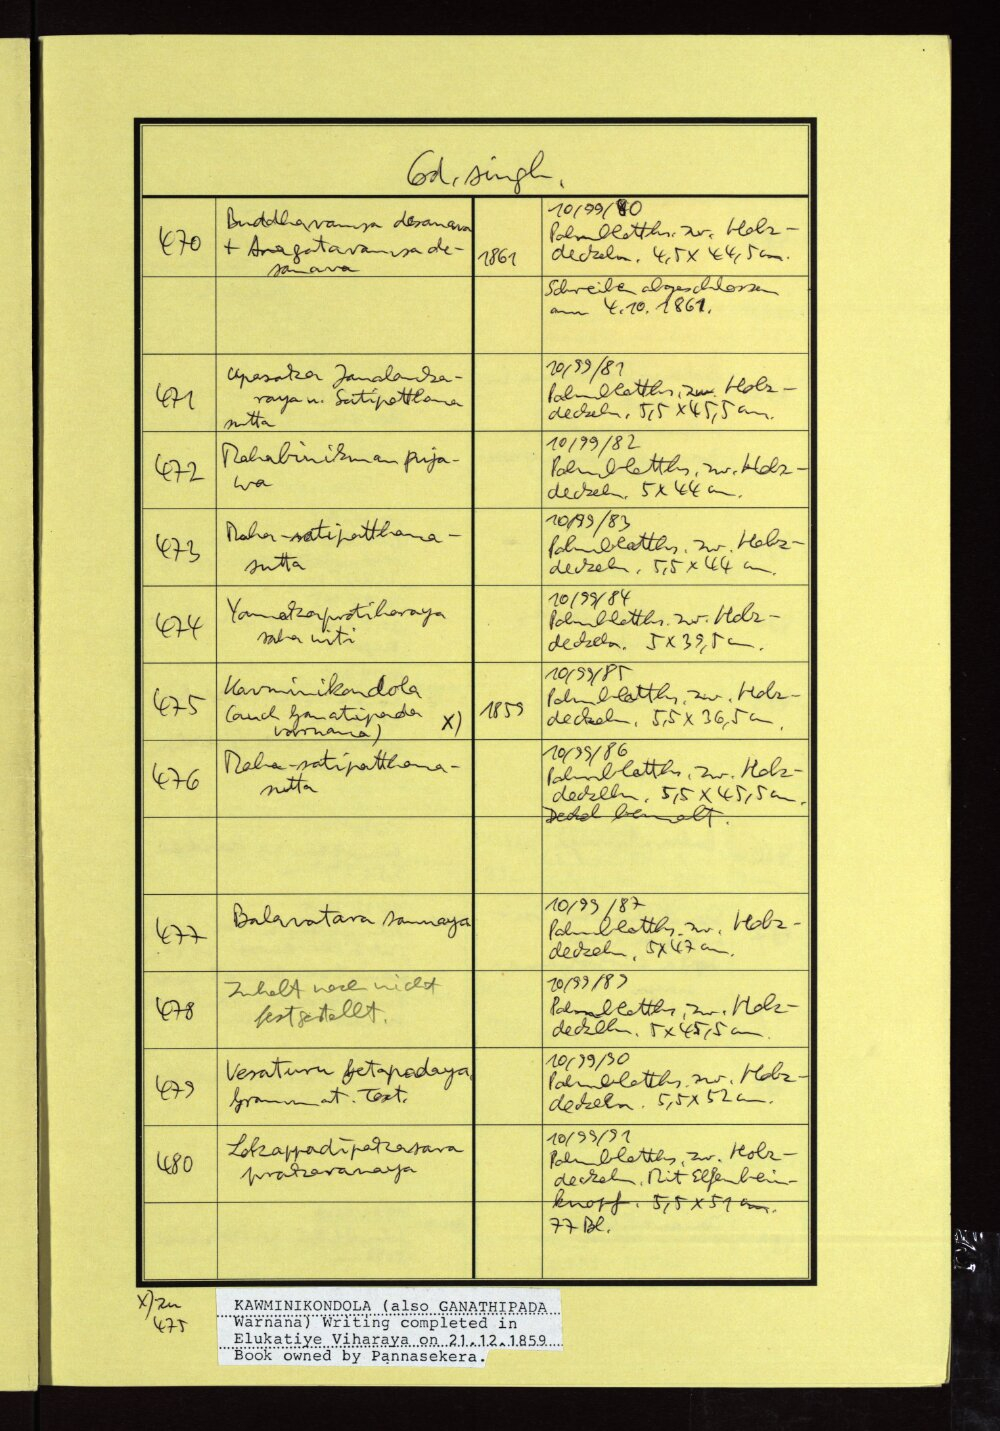 Cod. singh.
470
Buddhavamsa desanava
+ Anagatavamsa de-
sanava
1861
10/99/80
Palmblatths. zw. Holz-
deckeln. 4,5 x 44,5 cm.
Schreiben abgeschlossen
am 4.10.1861.
471
Upasaka Janalanka-
raya u. Satipatthana
sutta
10/99/81
Palmblatths. zw. Holz-
deckeln. 5,5 x 45,5 cm.
472
Mahabinikman puja-
wa
10/99/82
Palmblatths. zw. Holz-
deckeln. 5 x 44 cm.
473
Maha-satipatthana-
sutta
10/99/83
Palmblatths. zw. Holz-
deckeln. 5,5 x 44 cm.
474
Yamakapratiharaya
saha witi
10/99/84
Palmblatths. zw. Holz-
deckeln. 5 x 39,5 cm.
475
Kavminikondola
(auch Ganatipada
varnana) x)
1859
10/99/85
Palmblatths. zw. Holz-
deckeln. 5,5 x 36,5 cm
476
Maha-satipatthana-
sutta
10/99/86
Palmblatths. zw. Holz-
deckeln. 5,5 x 45,5 cm.
Deckel bemalt.
477
Balavatara sannaya
10/99/87
Palmblatths. zw. Holz-
deckeln. 5x47 cm.
478
Inhalt noch nicht
festgestellt.
10/99/89
Palmblatths. zw. Holz-
deckeln. 5 x 45,5 cm.
479
Vesaturu Getapadaya,
Grammat. Text.
10/99/90
Palmblatths. zw. Holz-
deckeln. 5,5 x 52 cm.
480
Lokappadipakasara
prakaranaya
10/99/91
Palmblatths. zw. Holz-
deckeln. Mit Elfenbein-
knopf. 5,5 x 51 cm.
77 Bl.
x) zu
475
KAWMINIKONDOLA (also GANATHIPADA
Warnana) Writing completed in
Elukatiye Viharaya on 21.12.1859
Book owned by Pannasekera.